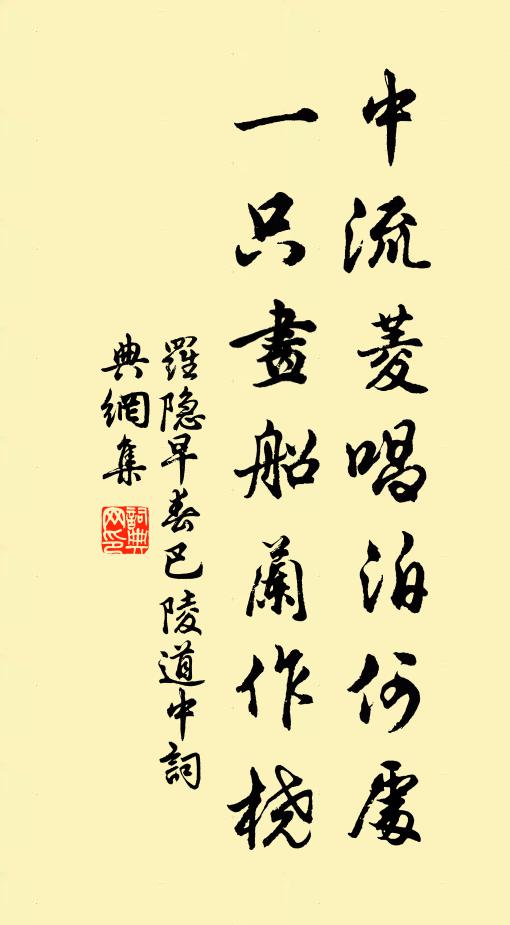 中流菱唱泊何處
一只畫船蘭作橈
羅隐早春巴陵道中詞
典網集
詞典網印